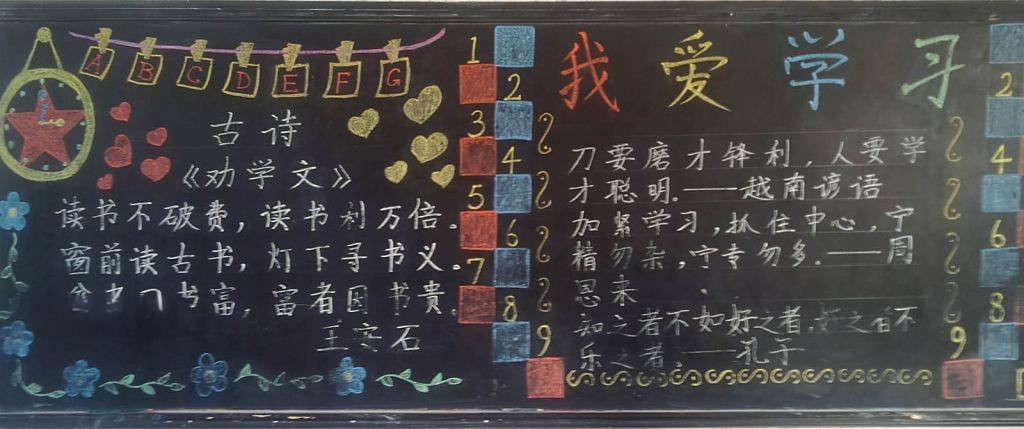 A B C D E F G
古诗
《劝学文》
读书不破费，读书利万倍。
窗前读古书，灯下寻书义。
书富，富者因书贵。
王安石
1
2
3
4
5
6
7
8
9
我爱学习
刀要磨才锋利，人要学
才聪明。——越南谚语
加紧学习，抓住中心，宁
精勿杂，宁专勿多。——周
恩来
知之者不如好之者，好之者不
乐之者。——孔子
2
4
6
8
9